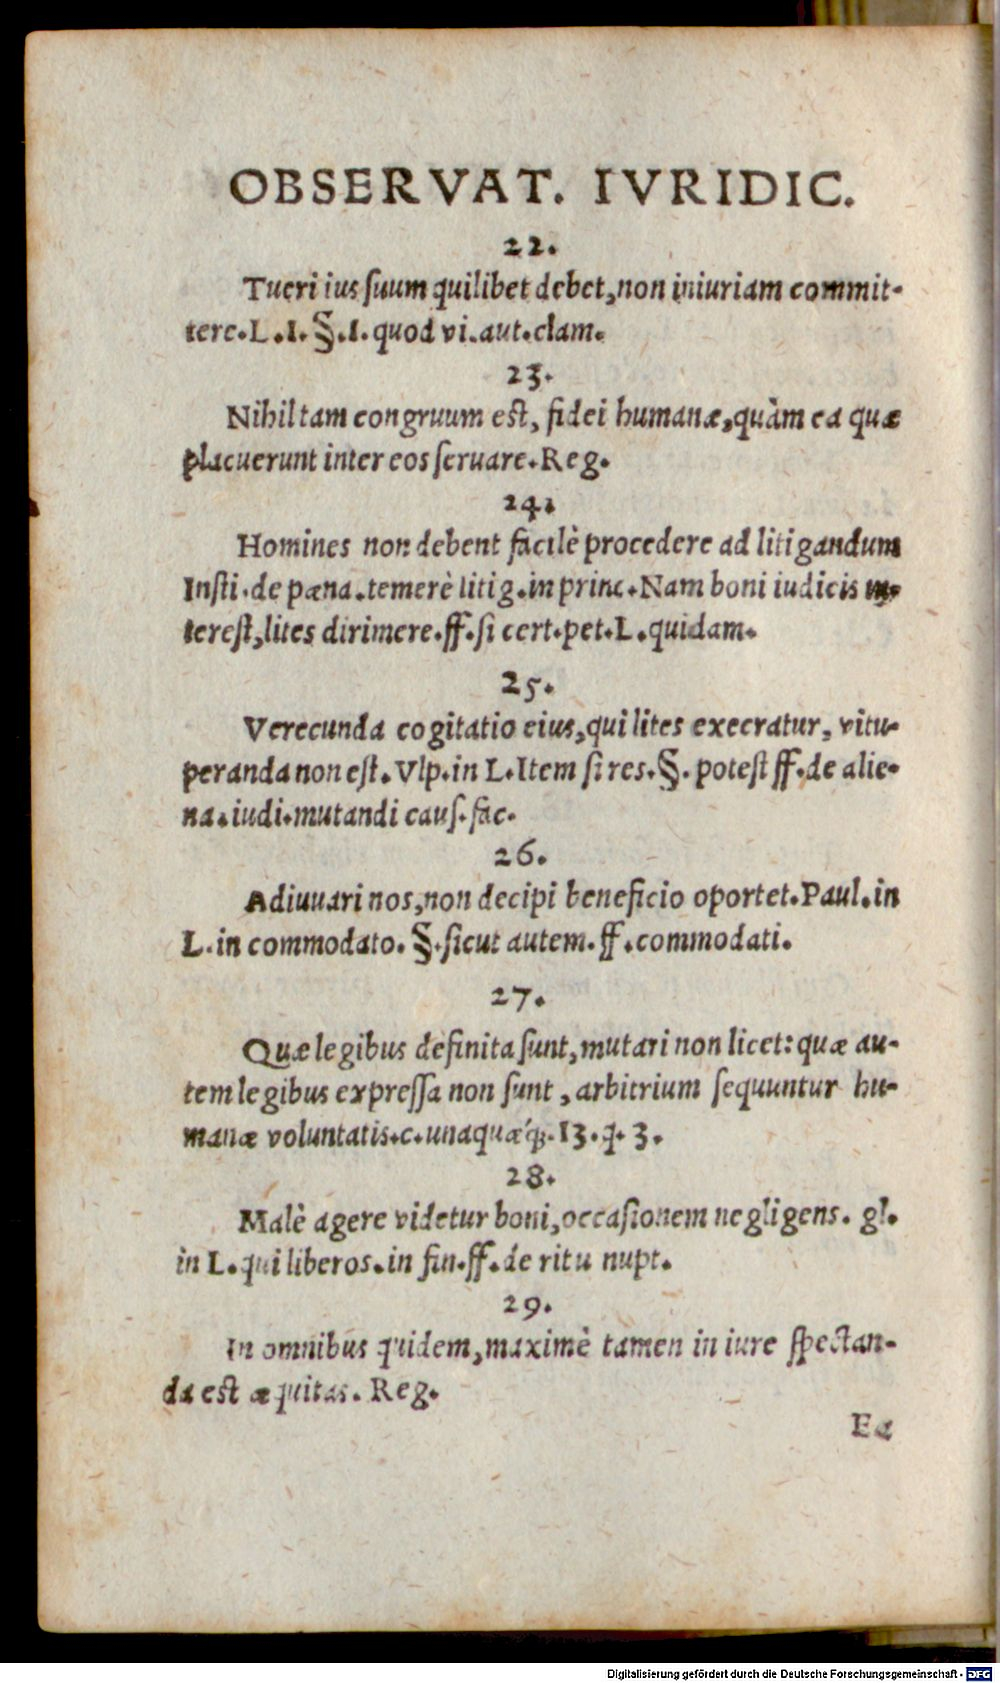 OBSERVAT. IVRIDIC.
22.
Tueri ius ſuum quilibet debet, non iniuriam commit-
tere. L. I. §. I. quod vi. aut. clam.
23.
Nihil tam congruum eſt, fidei humanæ, quàm ea quæ
placuerunt inter eos ſeruare. Reg.
24.
Homines non debent facilè procedere ad litigandum
Inſti. de pæna. temerè litig. in princ. Nam boni iudicis in-
tereſt, lites dirimere. ff. ſi cert. pet. L. quidam.
25.
Verecunda cogitatio eius, qui lites execratur, vitu-
peranda non eſt. Vlp. in L. Item ſi res. §. poteſt ff. de alie-
na. iudi. mutandi cauſ. fac.
26.
Adiuuari nos, non decipi beneficio oportet. Paul. in
L. in commodato. §. ſicut autem. ff. commodati.
27.
Quæ legibus definita ſunt, mutari non licet: quæ au-
tem legibus expreſſa non ſunt, arbitrium ſequuntur hu-
manæ voluntatis. c. unaquæq́;. 13. q. 3.
28.
Malè agere videtur boni, occaſionem negligens. gl.
in L. qui liberos. in fin. ff. de ritu nupt.
29.
In omnibus quidem, maximè tamen in iure ſpectan-
da est æquitas. Reg.
Ea
Digitalisierung gefördert durch die Deutsche Forschungsgemeinschaft - DFG